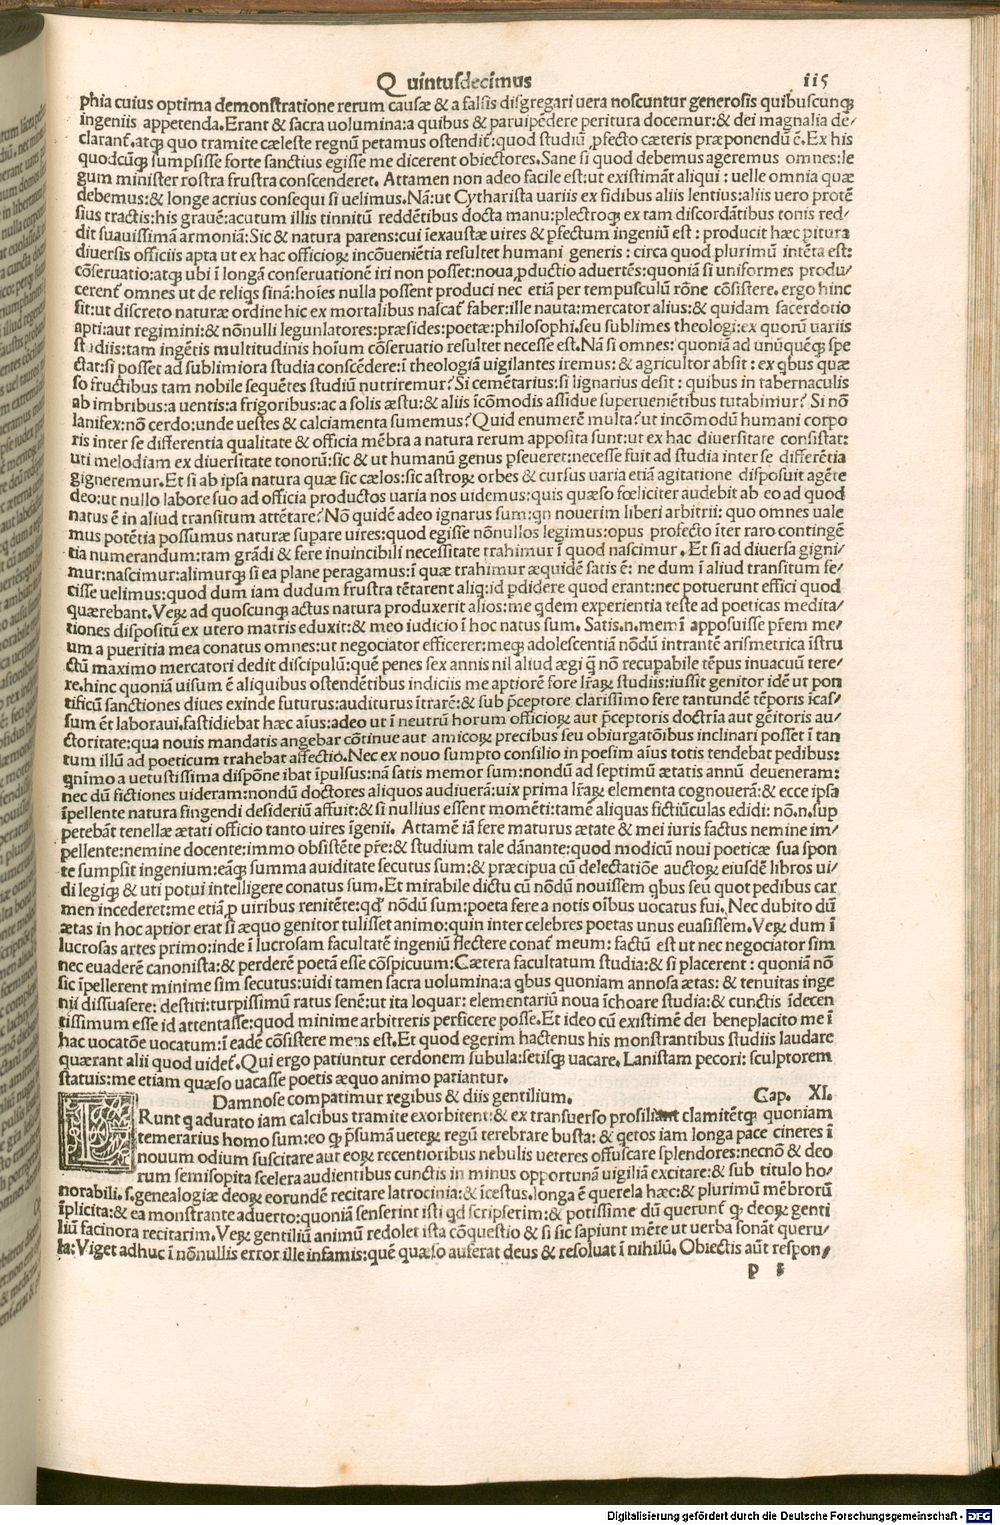 Quintusdecimus 115
phia cuius optima demonstratione rerum causæ & a falsis disgregari uera noscuntur generosis quibuscunqꝫ
ingeniis appetenda. Erant & sacra uolumina: a quibus & paruipẽdere peritura docemur: & dei magnalia de/
clarant̃. atqꝫ quo tramite cæleste regnũ petamus ostendit̃: quod studiũ ꝓfecto cæteris præponendũ ẽ. Ex his
quodcũqꝫ sumpsisse forte sanctius egisse me dicerent obiectores. Sane si quod debemus ageremus omnes: le
gum minister rostra frustra conscenderet. Attamen non adeo facile est: ut existimãt aliqui: uelle omnia quæ
debemus: & longe acrius consequi si uelimus. Nã: ut Cytharista uariis ex fidibus aliis lentius: aliis uero protẽ
sius tractis: his grauẽ: acutum illis tinnitũ reddẽtibus docta manu: plectroqꝫ ex tam discordãtibus tonis red/
dit suauissimã armoniã: Sic & natura parens: cui ĩexaustæ uires & ꝑfectum ingeniũ est: producit hæc ꝑitura
diuersis officiis apta ut ex hac officioꝝ incõueniẽtia resultet humani generis: circa quod plurimũ intẽta est:
cõseruatio: atqꝫ ubi ĩ longã conseruationẽ iri non posset: noua ꝓductio aduertẽs: quoniã si uniformes produ/
cerent̃ omnes ut de reliqs sinã: hoĩes nulla possent produci nec etiã per tempusculũ rõne cõsistere. ergo hinc
fit: ut discreto naturæ ordine hic ex mortalibus nascat̃ faber: ille nauta: mercator alius: & quidam sacerdotio
apti: aut regimini: & nõnulli legunlatores: præsides: poetæ: philosophi. seu sublimes theologi: ex quorũ uariis
studiis: tam ingẽtis multitudinis hoĩum cõseruatio resultet necesse est. Nã si omnes: quoniã ad unũquẽqꝫ spe
ctat: si posset ad sublimiora studia conscẽdere: ĩ theologiã uigilantes iremus: & agricultor absit: ex qbus quæ
so fructibus tam nobile sequẽtes studiũ nutriremur? Si cemẽtarius: si lignarius desit: quibus in tabernaculis
ab imbribus: a uentis: a frigoribus: ac a solis æstu: & aliis ĩcõmodis assidue superueniẽtibus tutabimur? Si nõ
lanifex: nõ cerdo: unde uestes & calciamenta sumemus? Quid enumerẽ multa? ut incõmodũ humani corpo
ris inter se differentia qualitate & officia mẽbra a natura rerum apposita sunt: ut ex hac diuersitate consistat:
uti melodiam ex diuersitate tonorũ: sic & ut humanũ genus ꝑseueret: necesse fuit ad studia inter se differẽtia
gigneremur. Et si ab ipsa natura quæ sic cælos: sic astroꝝ orbes & cursus uaria etiã agitatione disposuit agẽte
deo: ut nullo labore suo ad officia productos uaria nos uidemus: quis quæso fœliciter audebit ab eo ad quod
natus ẽ in aliud transitum attẽtare? Nõ quidẽ adeo ignarus sum: qn nouerim liberi arbitrii: quo omnes uale
mus potẽtia possumus naturæ supare uires: quod egisse nõnullos legimus: opus profecto ĩter raro contingẽ
tia numerandum: tam grãdi & fere inuincibili necessitate trahimur ĩ quod nascimur. Et si ad diuersa gigni/
mur: nascimur: alimurqꝫ si ea plane peragamus: ĩ quæ trahimur æquidẽ satis ẽ: ne dum ĩ aliud transitum fe/
cisse uelimus: quod dum iam dudum frustra tẽtarent aliq: id ꝑdidere quod erant: nec potuerunt effici quod
quærebant. Veꝝ ad quoscunqꝫ actus natura produxerit alios: me qdem experientia teste ad poeticas medita/
tiones dispositũ ex utero matris eduxit: & meo iudicio ĩ hoc natus sum. Satis. n. memĩ apposuisse p̃rem me/
um a pueritia mea conatus omnes: ut negociator efficerer: meqꝫ adolescentiã nõdũ intrantẽ arismetrica ĩstru
ctũ maximo mercatori dedit discipulũ: quẽ penes sex annis nil aliud ægi q̃ nõ recupabile tẽpus inuacuũ tere/
re. hinc quoniã uisum ẽ aliquibus ostendẽtibus indiciis me aptiorẽ fore lr̃aꝝ studiis: iussit genitor idẽ ut pon
tificũ sanctiones diues exinde futurus: auditurus ĩtrarẽ: & sub p̃ceptore clarissimo fere tantundẽ tẽporis ĩcas/
sum ẽt laboraui. fastidiebat hæc aĩus: adeo ut ĩ neutrũ horum officioꝝ aut p̃ceptoris doctrĩa aut gẽitoris au/
ctoritate: qua nouis mandatis angebar cõtinue aut amicoꝝ precibus seu obiurgatõibus inclinari posset ĩ tan
tum illũ ad poeticum trahebat affectio. Nec ex nouo sumpto consilio in poesim aĩus totis tendebat pedibus:
qnimo a uetustissima dispõne ibat ĩpulsus: nã satis memor sum: nondũ ad septimũ ætatis annũ deueneram:
nec dũ fictiones uideram: nondũ doctores aliquos audiuerã: uix prima lr̃aꝝ elementa cognouerã: & ecce ipsa
ĩpellente natura fingendi desideriũ affuit: & si nullius essent momẽti: tamẽ aliquas fictiũculas edidi: nõ. n. sup
petebãt tenellæ ætati officio tanto uires ĩgenii. Attamẽ iã fere maturus ætate & mei iuris factus nemine im/
pellente: nemine docente: immo obsistẽte p̃re: & studium tale dãnante: quod modicũ noui poeticæ sua spon
te sumpsit ingenium: eãqꝫ summa auiditate secutus sum: & præcipua cũ delectatiõe auctoꝝ eiusdẽ libros ui/
di legiqꝫ & uti potui intelligere conatus sum. Et mirabile dictu cũ nõdũ nouissem qbus seu quot pedibus car
men incederet: me etiã ꝓ uiribus renitẽte: qđ nõdũ sum: poeta fere a notis oĩbus uocatus fui. Nec dubito dũ
ætas in hoc aptior erat si æquo genitor tulisset animo: quin inter celebres poetas unus euasissem. Veꝝ dum ĩ
lucrosas artes primo: inde ĩ lucrosam facultatẽ ingeniũ flectere conat̃ meum: factũ est ut nec negociator sim
nec euaderẽ canonista: & perderẽ poetã esse cõspicuum: Cætera facultatum studia: & si placerent: quoniã nõ
sic ĩpellerent minime sim secutus: uidi tamen sacra uolumina: a qbus quoniam annosa ætas: & tenuitas inge
nii dissuasere: destiti: turpissimũ ratus senẽ: ut ita loquar: elementariũ noua ĩchoare studia: & cunctis ĩdecen
tissimum esse id attentasse: quod minime arbitreris perficere posse. Et ideo cũ existimẽ dei beneplacito me ĩ
hac uocatõe uocatum: ĩ eadẽ cõsistere mens est. Et quod egerim hactenus his monstrantibus studiis laudare
quærant alii quod uidet̃. Qui ergo patiuntur cerdonem subula: setisqꝫ uacare. Lanistam pecori: sculptorem
statuis: me etiam quæso uacasse poetis æquo animo patiantur.
Damnose compatimur regibus & diis gentilium. Cap. XI.
ERunt q adurato iam calcibus tramite exorbitent: & ex transuerso prosiliant clamitẽtqꝫ quoniam
temerarius homo sum: eo qꝫ p̃sumã ueteꝝ regũ terebrare busta: & qetos iam longa pace cineres ĩ
nouum odium suscitare aut eoꝝ recentioribus nebulis ueteres offuscare splendores: necnõ & deo
rum semisopita scelera audientibus cunctis in minus opportunã uigiliã excitare: & sub titulo ho/
norabili. s. genealogiæ deoꝝ eorundẽ recitare latrocinia: & ĩcestus. longa ẽ querela hæc: & plurimũ mẽbrorũ
ĩplicita: & ea monstrante aduerto: quoniã senserint isti qd scripserim: & potissime dũ querunt̃ qꝫ deoꝝ genti
liũ facinora recitarim. Veꝝ gentiliũ animũ redolet ista cõquestio & si sic sapiunt mẽte ut uerba sonãt queru/
la: Viget adhuc ĩ nõnullis error ille infamis: quẽ quæso auferat deus & resoluat ĩ nihilũ. Obiectis aũt respon/
p
Digitalisierung gefördert durch die Deutsche Forschungsgemeinschaft - DFG